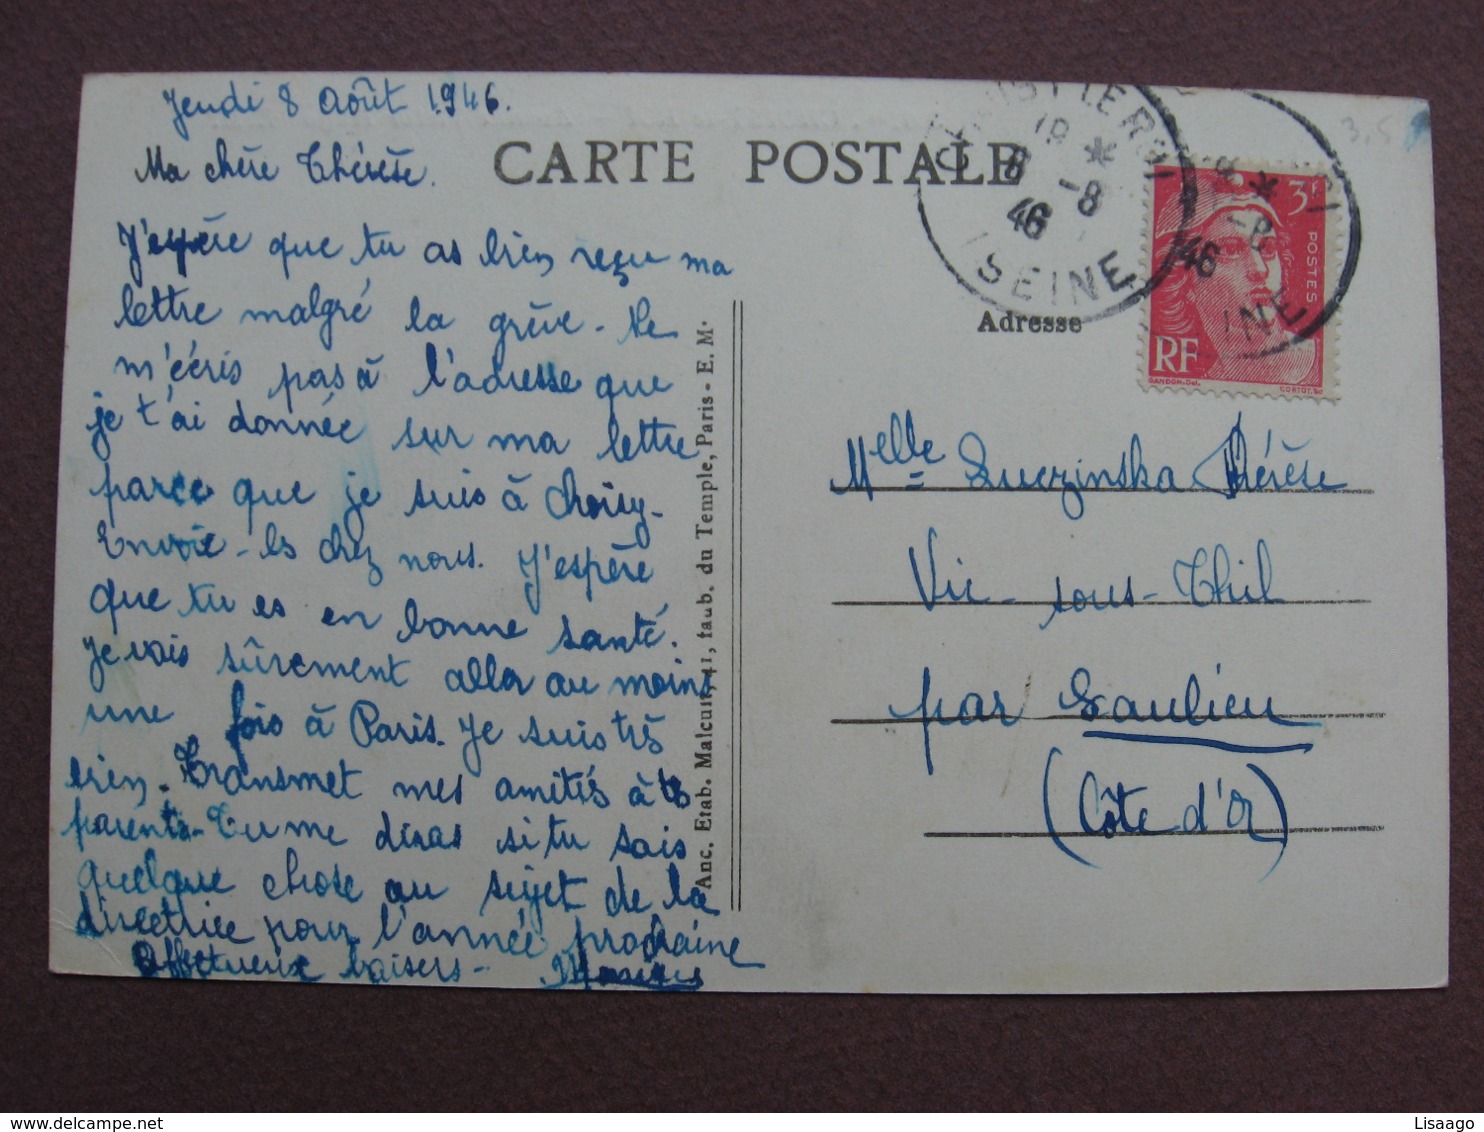 Jeudi 8 Août 1946.
Ma chère Thérèse.
J'espère que tu as bien reçu ma
lettre malgré la grève. Ne
m'écris pas à l'adresse que
je t'ai donnée sur ma lettre
parce que je suis à Choisy.
Envoie-les chez nous. J'espère
que tu es en bonne santé.
Je vais sûrement aller au moins
une fois à Paris. Je suis très
bien. Transmet mes amitiés à tes
parents. Tu me diras si tu sais
quelque chose au sujet de la
directrice pour l'année prochaine
Affectueux baisers -
CARTE POSTALE
Anc. Etab. Malcuit, 41, faub. du Temple, Paris - E. M.
CHOISY LE ROI
18 *
8 -8
46
SEINE
* -8
46
INE
3F
POSTES
RF
GANDON. Del.
CORTOT. Sc
3,5
Adresse
Melle Suczinska Thérèse
Vic-sous-Thil
par Saulieu
(Côte d'Or)
Lisaago